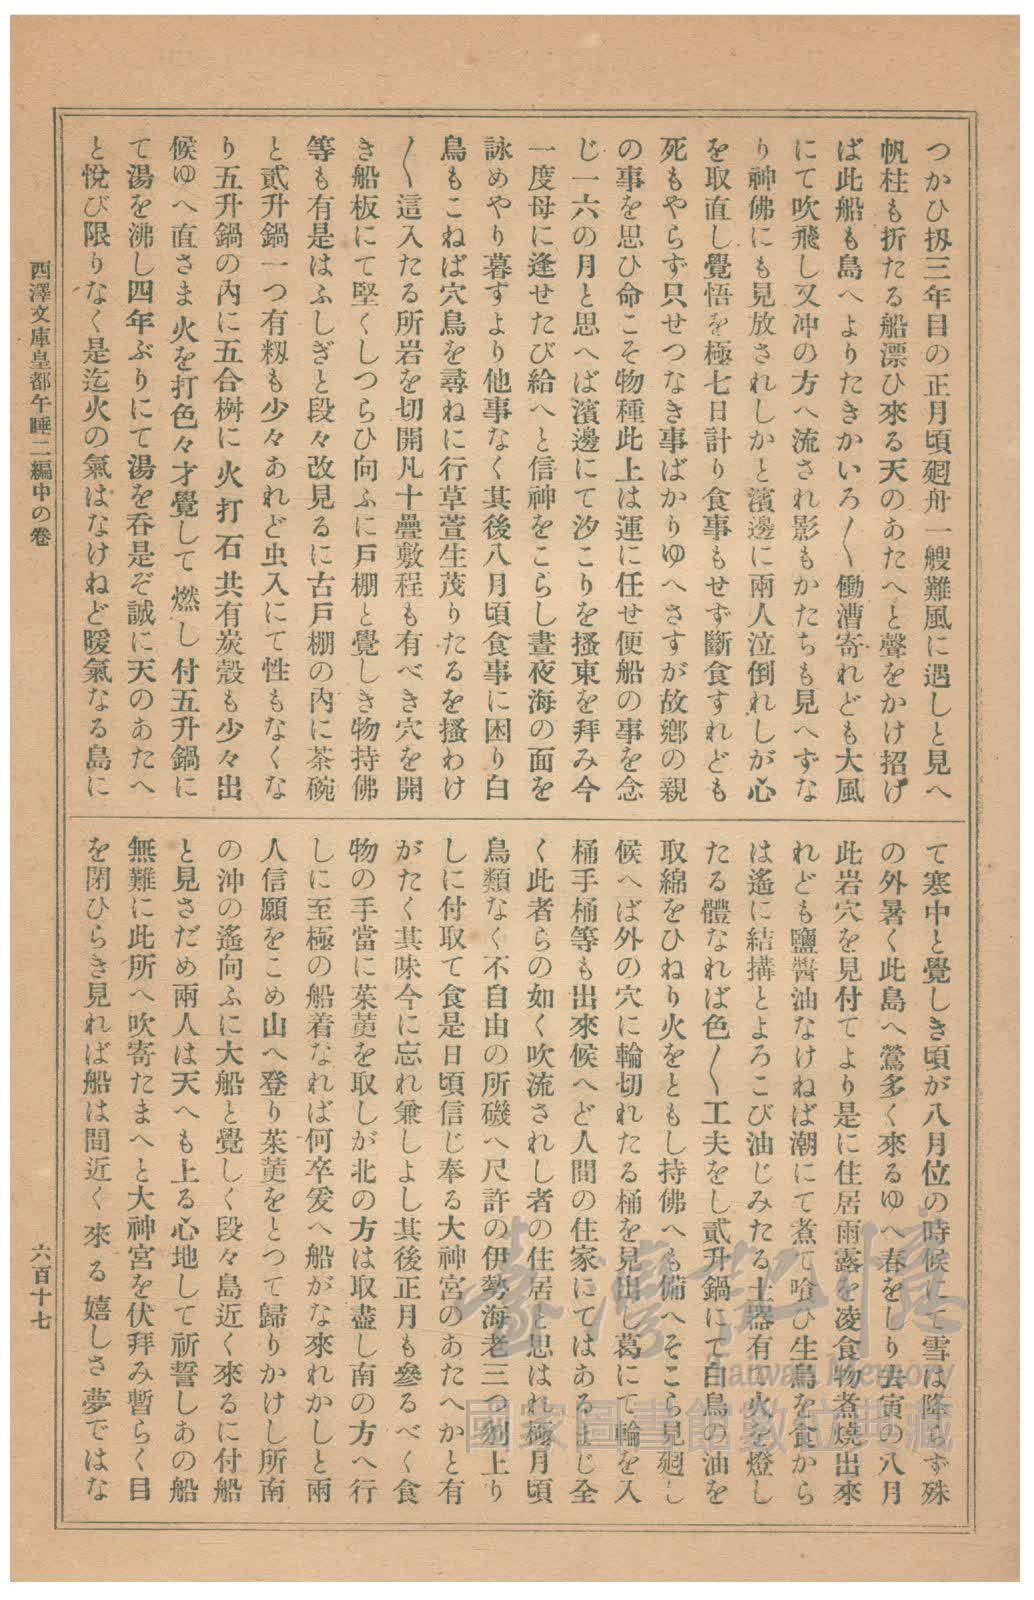 つかひ扨三年目の正月頃廻舟一艘難風に遇しと見へ
帆柱も折たる船漂ひ來る天のあたへと聲をかけ招げ
ば此船も島へよりたきかいろ〱働漕寄れども大風
にて吹飛し又沖の方へ流され影もかたちも見へずな
り神佛にも見放されしかと濱邊に兩人泣倒れしが心
を取直し覺悟を極七日計り食事もせず斷食すれども
死もやらず只せつなき事ばかりゆへさすが故鄕の親
の事を思ひ命こそ物種此上は運に任せ便船の事を念
じ一六の月と思へば濱邊にて汐こりを搔東を拜み今
一度母に逢せたび給へと信神をこらし晝夜海の面を
詠めやり暮すより他事なく其後八月頃食事に困り白
鳥もこねば穴鳥を尋ねに行草萱生茂りたるを搔わけ
〱這入たる所岩を切開凡十疊敷程も有べき穴を開
き船板にて堅くしつらひ向ふに戸棚と覺しき物持佛
等も有是はふしぎと段々改見るに古戸棚の內に茶碗
と貳升鍋一つ有籾も少々あれど虫入にて性もなくな
り五升鍋の內に五合桝に火打石共有炭殼も少々出
候ゆへ直さま火を打色々才覺して燃し付五升鍋に
て湯を沸し四年ぶりにて湯を呑是ぞ誠に天のあたへ
と悅び限りなく是迄火の氣はなけねど暖氣なる島に
て寒中と覺しき頃が八月位の時候にて雪は降らず殊
の外暑く此島へ鶯多く來るゆへ春をしり去寅の八月
此岩穴を見付てより是に住居雨露を凌食物煮燒出來
れども鹽醬油なけねば潮にて煮て喰ひ生鳥を食から
は遙に結搆とよろこび油じみたる土器有て火を燈し
たる體なれば色〱工夫をし貳升鍋にて白鳥の油を
取綿をひねり火をともし持佛へも備へそこら見廻し
候へば外の穴に輪切れたる桶を見出し葛にて輪を入
桶手桶等も出來候へど人間の住家にてはあるまじ全
く此者らの如く吹流されし者の住居と思はれ極月頃
鳥類なく不自由の所磯へ尺許の伊勢海老三つ刎上り
しに付取て食是日頃信じ奉る大神宮のあたへかと有
がたく其味今に忘れ兼しよし其後正月も參るべく食
物の手當に茱萸を取しが北の方は取盡し南の方へ行
しに至極の船着なれば何卒爰へ船がな來れかしと兩
人信願をこめ山へ登り茱萸をとつて歸りかけし所南
の沖の遙向ふに大船と覺しく段々島近く來るに付船
と見さだめ兩人は天へも上る心地して祈誓しあの船
無難に此所へ吹寄たまへと大神宮を伏拜み暫らく目
を閉ひらき見れば船は間近く來る嬉しさ夢ではな
西澤文庫皇都午睡二編中の卷
六百十七
臺灣記憶
Taiwan Memory
國家圖書館數位典藏